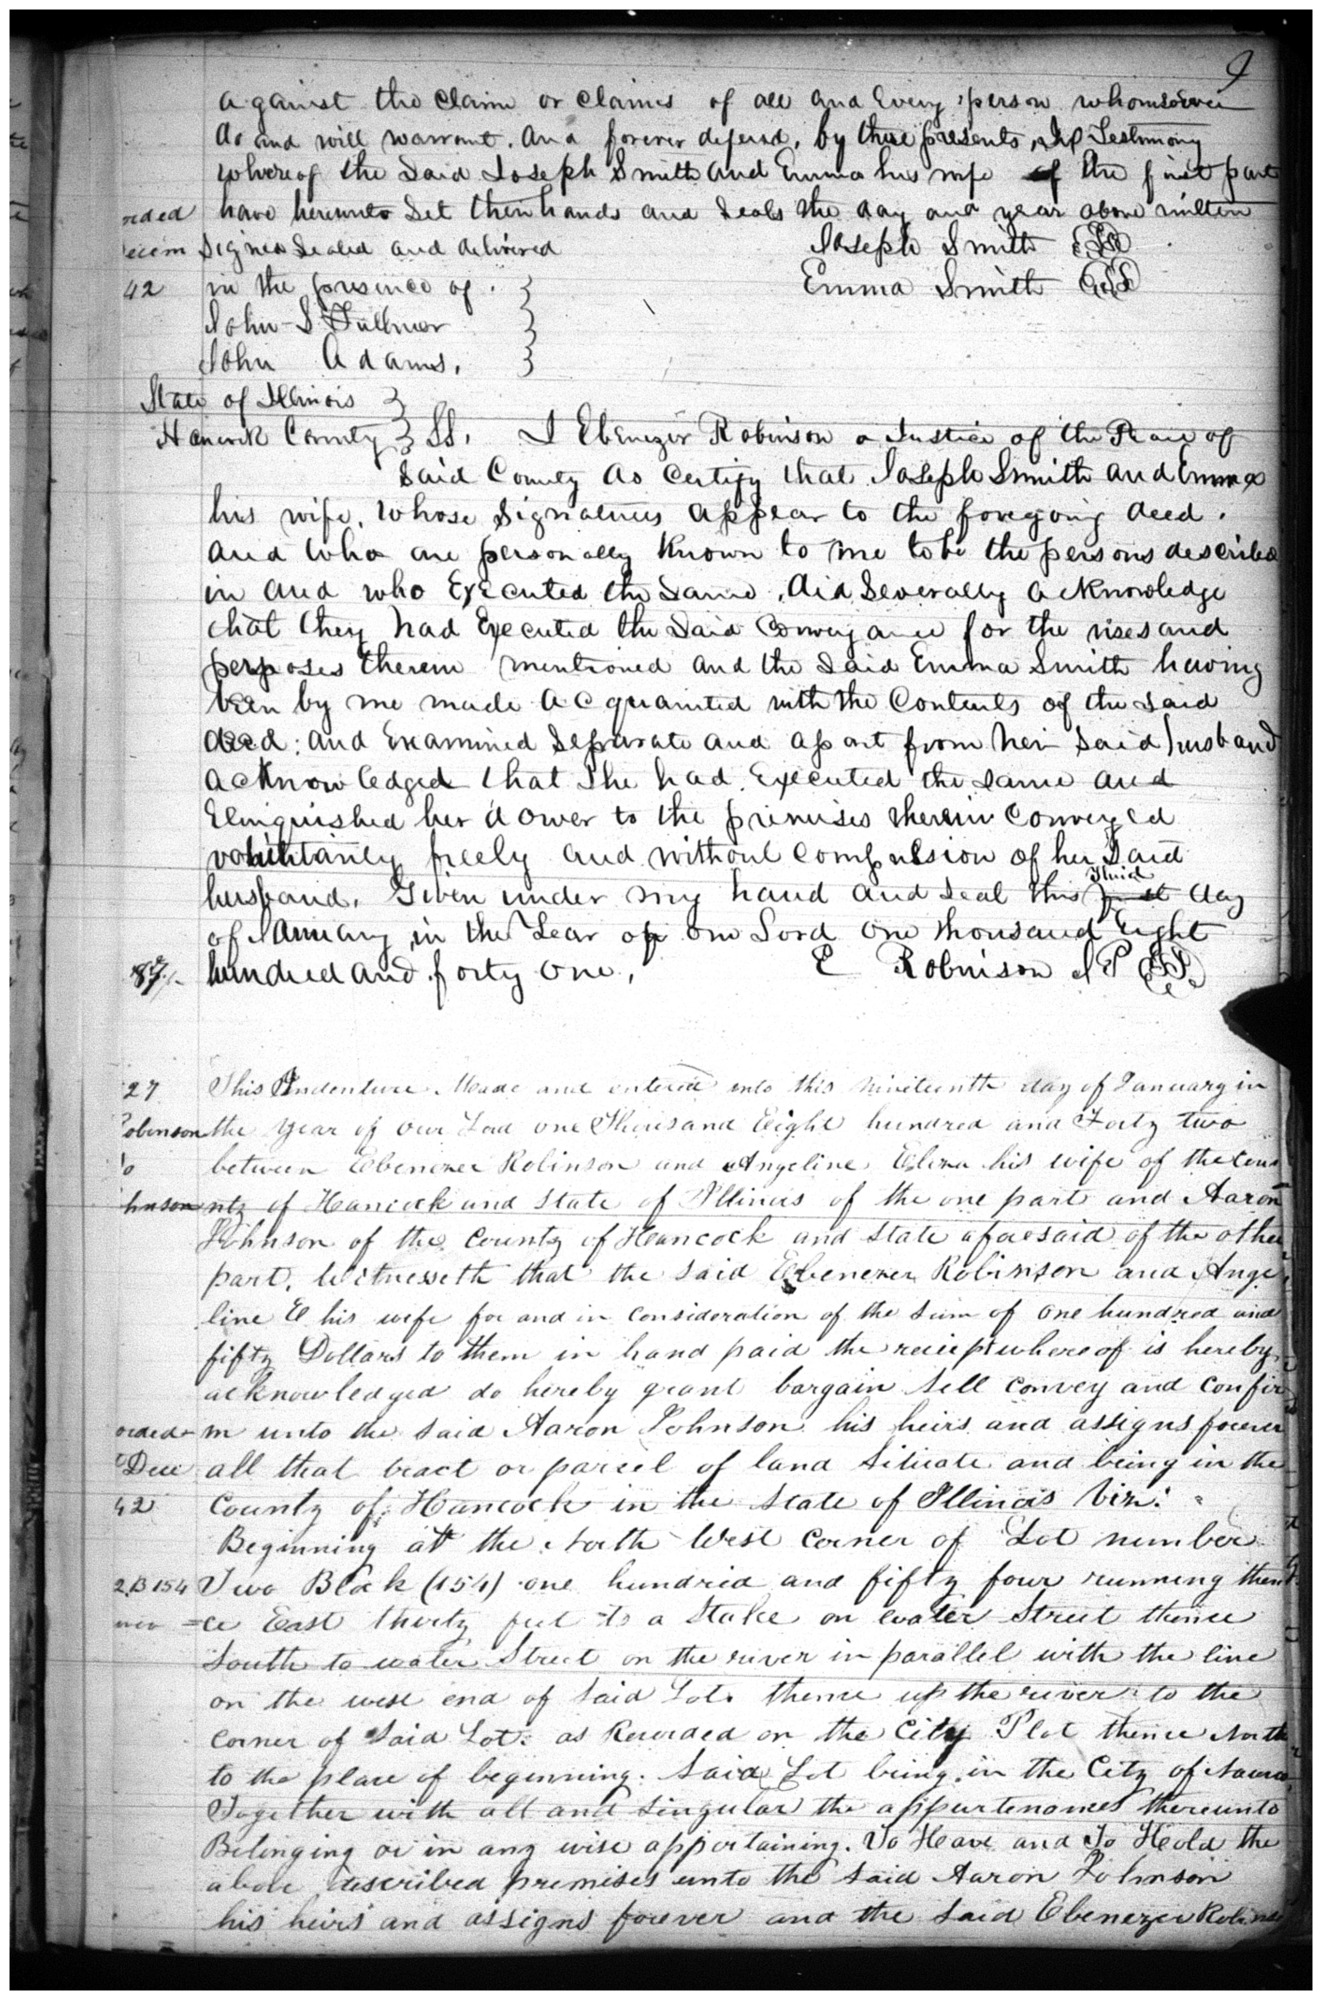 9
against the claim or claims of all and Every person whomsoever
do and will warrant. And forever defend, by these presents, In Testimony
whereof the Said Joseph Smith and Emma his wife of the first part
orded have hereunto Set their hands and Seals the day and year above written
Decem Signed Sealed and delivered Joseph Smith
42 in the presence of Emma Smith
John S Fullmer
John Adams.
State of Illinois
Hancock County SS. I Ebenezer Robinson a Justice of the Peace of
Said County do Certify that Joseph Smith and Emma
his wife, whose Signatures appear to the foregoing deed.
and who are personally Known to me to be the persons described
in and who Executed the Same, did Severally acknowledge
that they had Executed the Said Conveyance for the uses and
perposes therein mentioned and the Said Emma Smith having
been by me made acquainted with the Contents of the Said
deed: and Examined Separate and apart from her Said husband
acknowledged that She had Executed the Same and
Elinquished her dower to the premises therein Conveyed
voluntarily freely and without Compulsion of her Said
husband. Given under my hand and Seal this first third day
of January in the Year of our Lord One thousand Eight
87/- hundred and forty One. E Robinson JP
27 This Indenture. Made and entered into this nineteenth day of January in
Robinson the year of our Lord one Thousand Eight hundred and Forty two
To between Ebenezer Robinson and Angeline Eliza his wife of the Cou
hnson nty of Hancock and State of Illinois of the one part and Aaron
Johnson of the County of Hancock and State aforesaid of the other
part. Witnesseth that the said Ebenezer Robinson and Ange
line E his wife for and in consideration of the sum of one hundred and
fifty Dollars to them in hand paid the receipt whereof is hereby
acknowledged do hereby grant bargain sell convey and confir
orded m unto the said Aaron Johnson his heirs and assigns forever
Dece all that tract or parcel of land situate and being in the
42 County of Hancock in the State of Illinois viz:
Beginning at the North West corner of Lot number
2 B 154 Two Block (154) one hundred and fifty four running then
=ce East thirty feet to a Stake on water Street thence
South to water Street on the river in parallel with the line
on the west end of said Lot thence up the river to the
corner of said Lot as Recorded on the City Plot thence North
to the place of beginning. Said Lot being in the City of Nauvoo
Together with all and singular the appurtenances thereunto
Belonging or in any wise appertaining. To Have and To Hold the
above described premises unto the said Aaron Johnson
his heirs and assigns forever and the said Ebenezer Robinson